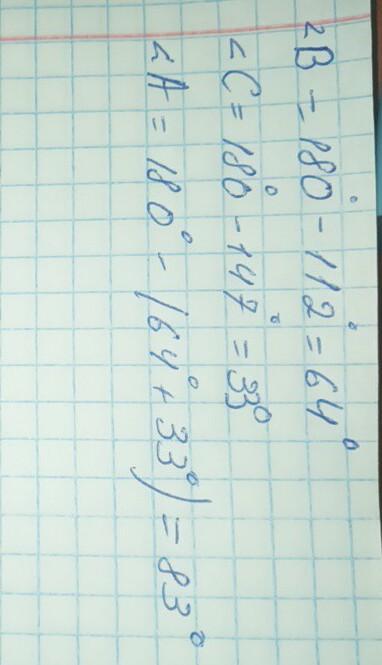 ∠B = 180° - 112° = 64°
∠C = 180° - 147° = 33°
∠A = 180° - (64° + 33°) = 83°